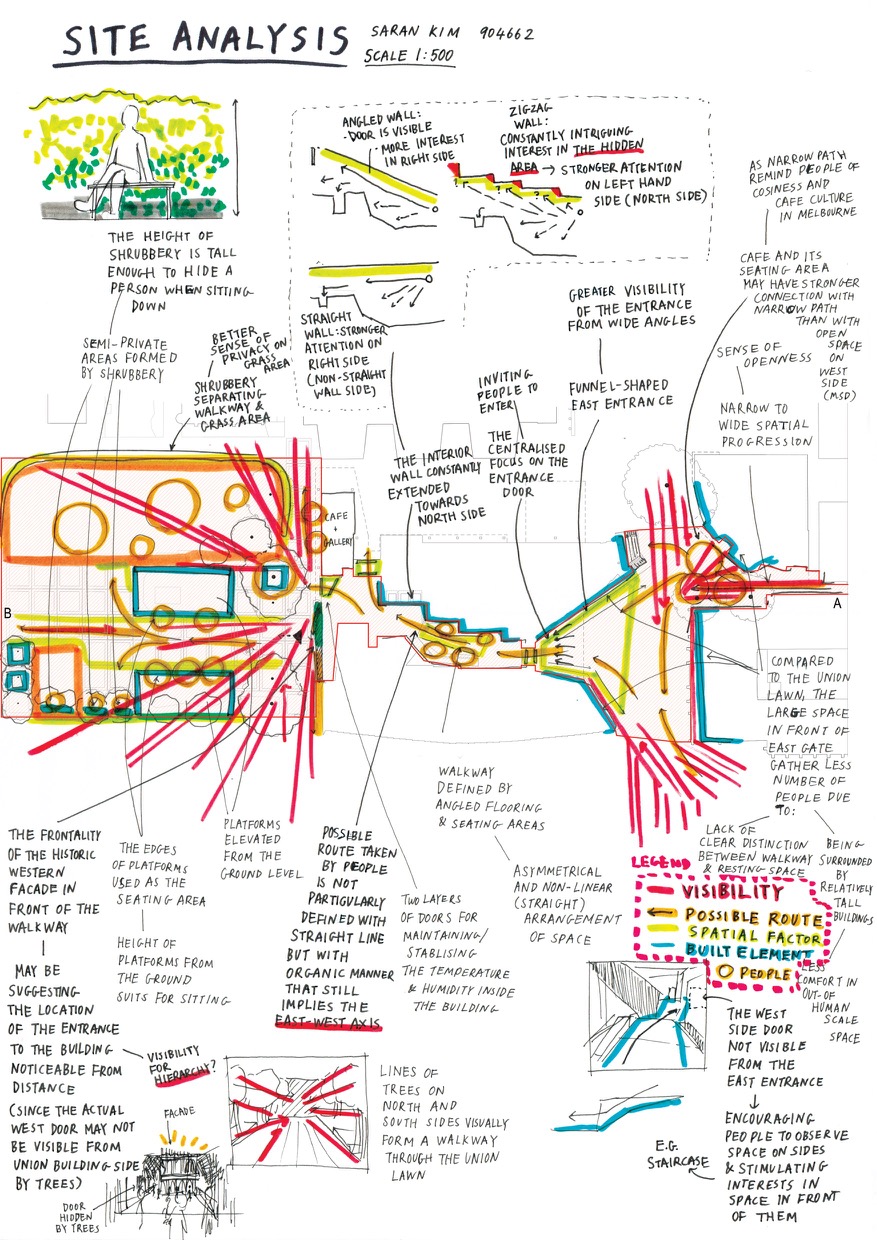 SITE ANALYSIS
SARAN KIM 904662
SCALE 1:500
THE HEIGHT OF
SHRUBBERY IS TALL
ENOUGH TO HIDE A
PERSON WHEN SITTING
DOWN
ANGLED WALL:
·DOOR IS VISIBLE
·MORE INTEREST
IN RIGHT SIDE
ZIGZAG
WALL:
CONSTANTLY INTRIGUING
INTEREST IN THE HIDDEN
AREA → STRONGER ATTENTION
ON LEFT HAND
SIDE (NORTH SIDE)
STRAIGHT
WALL: STRONGER
ATTENTION ON
RIGHT SIDE
(NON-STRAIGHT
WALL SIDE)
AS NARROW PATH
REMIND PEOPLE OF
COSINESS AND
CAFE CULTURE
IN MELBOURNE
CAFE AND ITS
SEATING AREA
MAY HAVE STRONGER
CONNECTION WITH
NARROW PATH
THAN WITH
OPEN
SPACE
ON
WEST
SIDE
(MSD)
GREATER VISIBILITY
OF THE ENTRANCE
FROM WIDE ANGLES
FUNNEL-SHAPED
EAST ENTRANCE
SENSE OF
OPENNESS
NARROW TO
WIDE SPATIAL
PROGRESSION
SEMI-PRIVATE
AREAS FORMED
BY SHRUBBERY
BETTER
SENSE OF
PRIVACY ON
GRASS
AREA
SHRUBBERY
SEPARATING
WALKWAY &
GRASS AREA
INVITING
PEOPLE TO
ENTER
THE
CENTRALISED
FOCUS ON THE
ENTRANCE
DOOR
THE INTERIOR
WALL CONSTANTLY
EXTENDED
TOWARDS
NORTH SIDE
CAFE
+
GALLERY
B
A
COMPARED
TO THE UNION
LAWN, THE
LARGE SPACE
IN FRONT OF
EAST GATE
GATHER LESS
NUMBER OF
PEOPLE DUE
TO:
LACK OF
CLEAR DISTINCTION
BETWEEN WALKWAY
& RESTING SPACE
BEING
SURROUNDED
BY
RELATIVELY
TALL
BUILDINGS
LESS
COMFORT IN
OUT-OF
HUMAN
SCALE
SPACE
WALKWAY
DEFINED BY
ANGLED FLOORING
& SEATING AREAS
ASYMMETRICAL
AND NON-LINEAR
(STRAIGHT)
ARRANGEMENT
OF SPACE
THE FRONTALITY
OF THE HISTORIC
WESTERN
FACADE IN
FRONT OF THE
WALKWAY
MAY BE
SUGGESTING
THE LOCATION
OF THE ENTRANCE
TO THE BUILDING
NOTICEABLE FROM
DISTANCE
(SINCE THE ACTUAL
WEST DOOR MAY NOT
BE VISIBLE FROM
UNION BUILDING SIDE
BY TREES)
THE EDGES
OF PLATFORMS
USED AS THE
SEATING AREA
HEIGHT OF
PLATFORMS FROM
THE GROUND
SUITS FOR SITTING
PLATFORMS
ELEVATED
FROM THE
GROUND LEVEL
POSSIBLE
ROUTE TAKEN
BY PEOPLE
IS NOT
PARTICULARLY
DEFINED WITH
STRAIGHT LINE
BUT WITH
ORGANIC MANNER
THAT STILL
IMPLIES THE
EAST-WEST AXIS
TWO LAYERS
OF DOORS FOR
MAINTAINING/
STABLISING
THE TEMPERATURE
& HUMIDITY INSIDE
THE BUILDING
LEGEND
VISIBILITY
POSSIBLE ROUTE
SPATIAL FACTOR
BUILT ELEMENT
PEOPLE
VISIBILITY
FOR
HIERARCHY?
FACADE
DOOR
HIDDEN
BY TREES
LINES OF
TREES ON
NORTH AND
SOUTH SIDES VISUALLY
FORM A WALKWAY
THROUGH THE UNION
LAWN
THE WEST
SIDE DOOR
NOT VISIBLE
FROM THE
EAST ENTRANCE
ENCOURAGING
PEOPLE TO OBSERVE
SPACE ON SIDES
& STIMULATING
INTERESTS IN
SPACE IN FRONT
OF THEM
E.G.
STAIRCASE